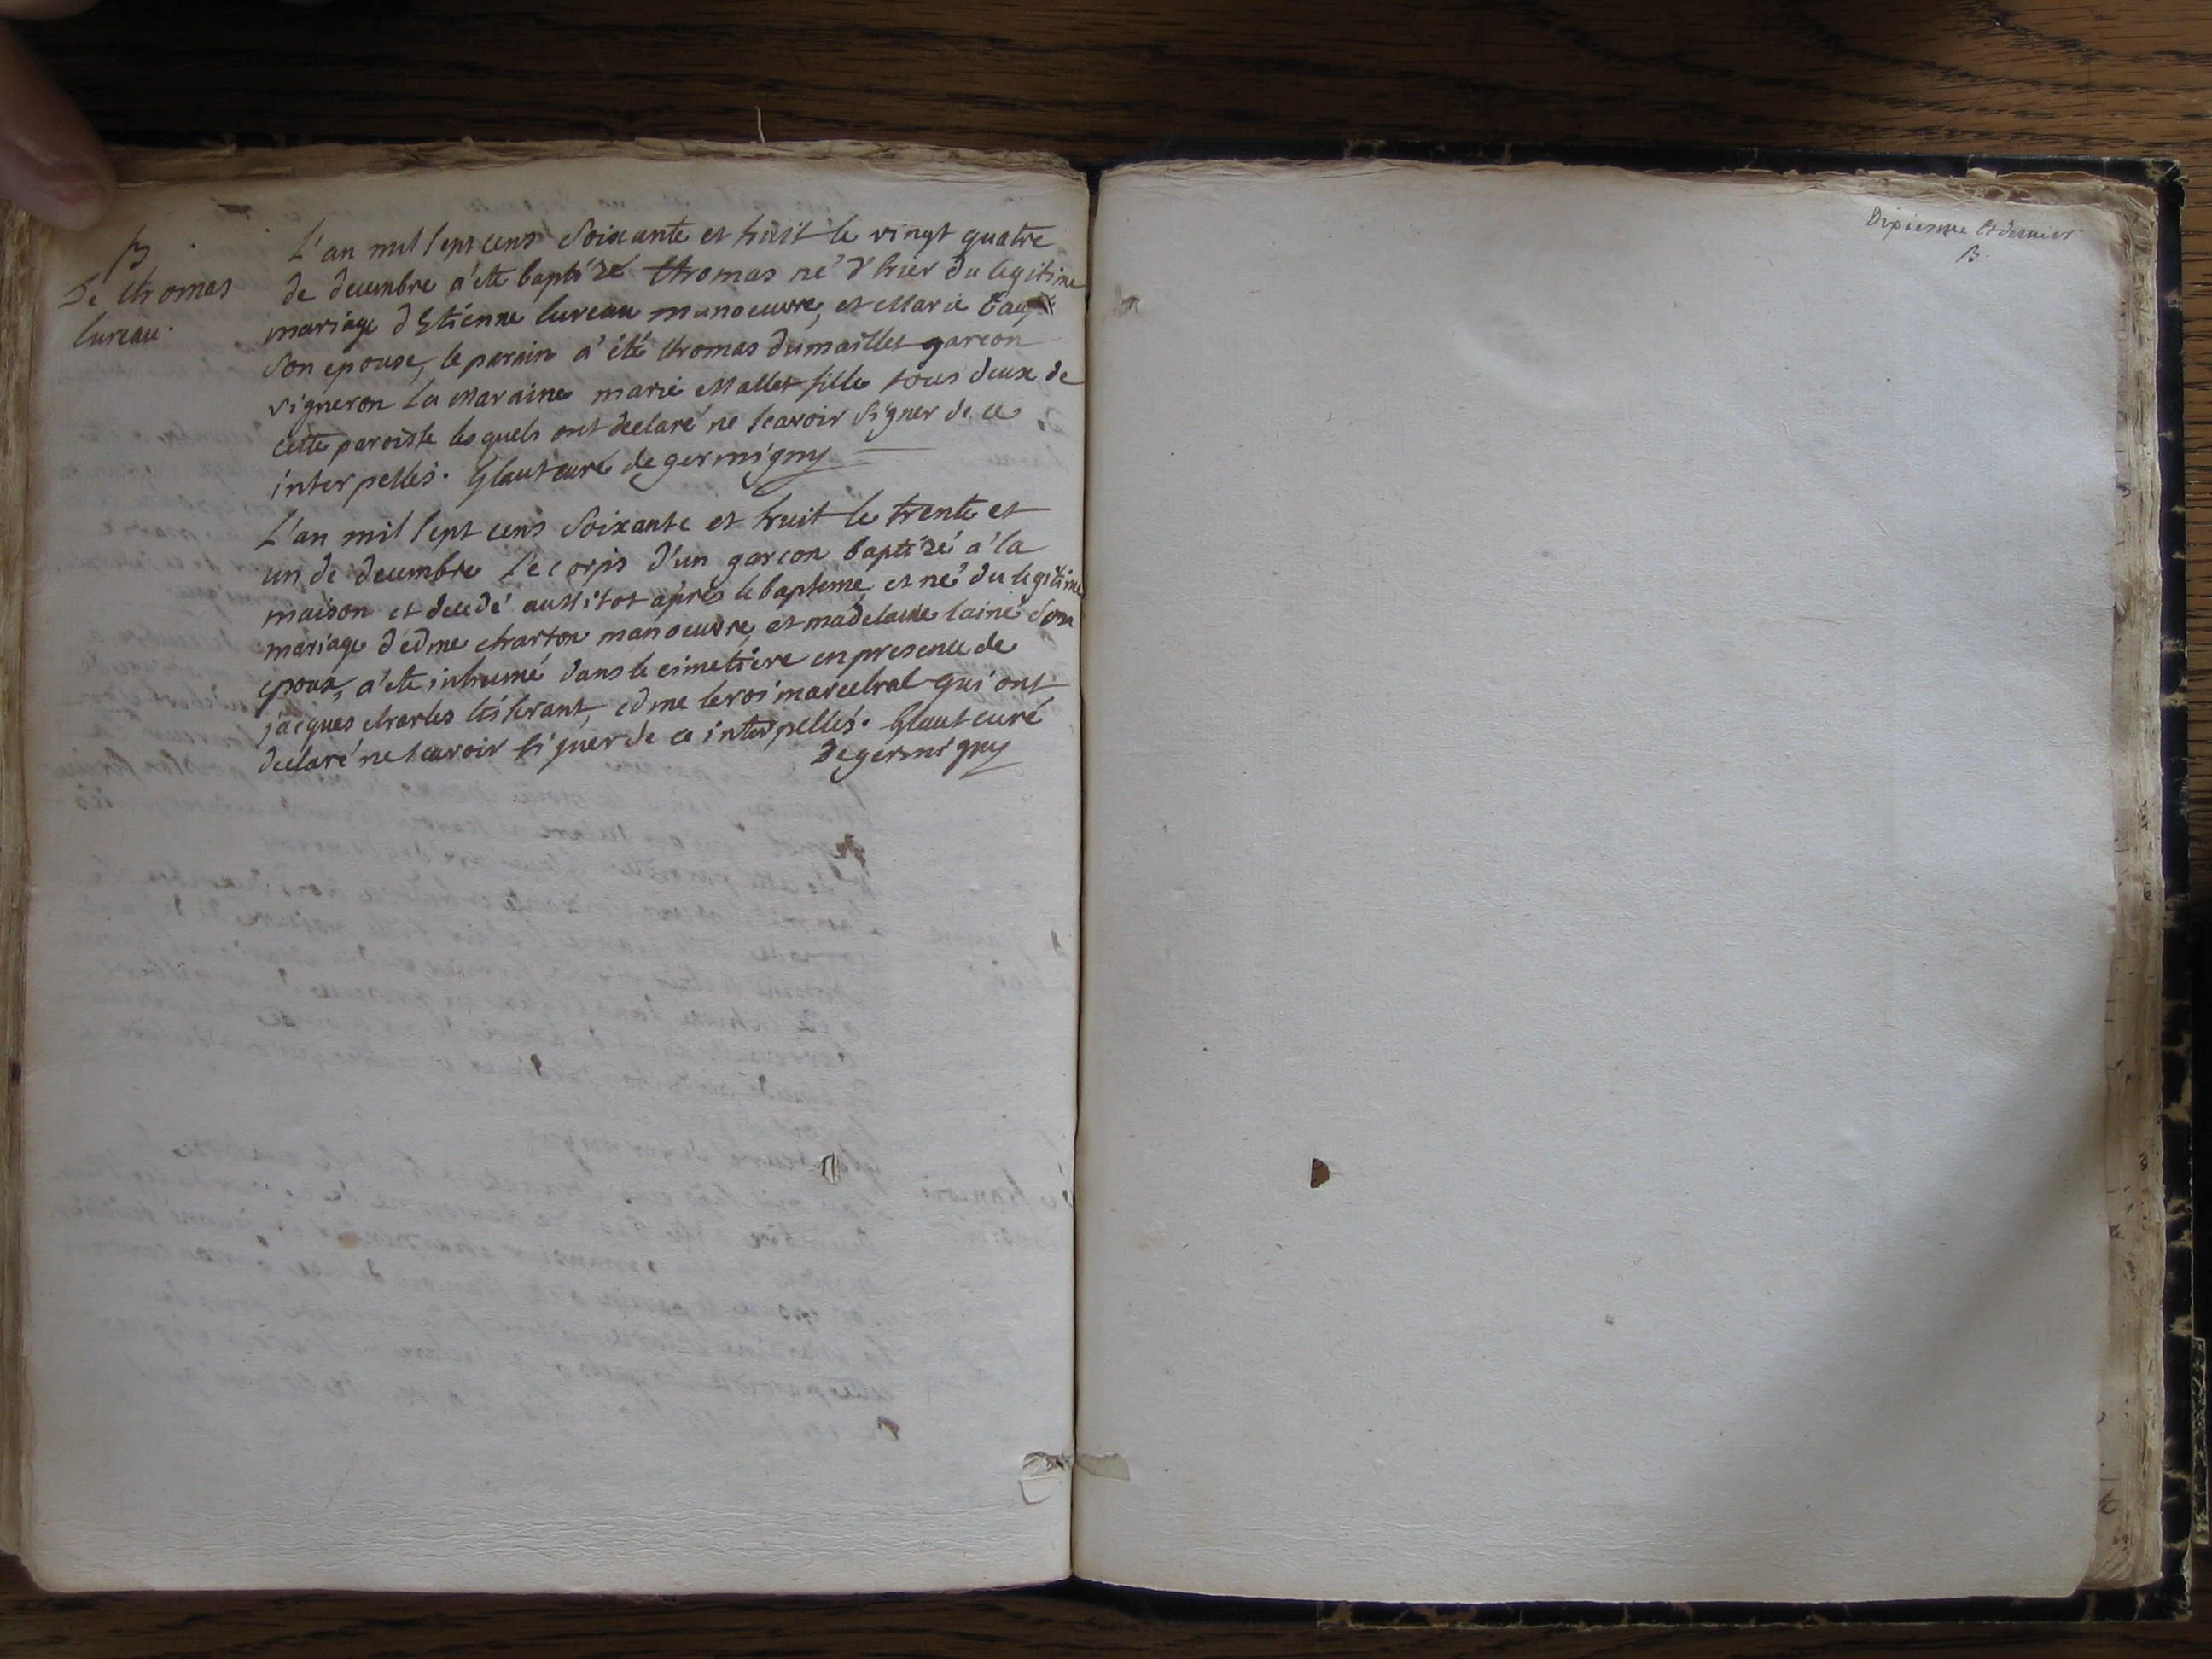 B
De thomas
lureau.
L'an mil sept cens soixante et huit le vingt quatre
de decembre a eté baptizé thomas né d'hier du legitime
mariage d'Etienne lureau manoeuvre, et Marie
son epouse, le parain a été thomas dumaillet garcon
vigneron La Maraine marie Mallet fille tous deux de
cette paroisse lesquels ont declaré ne scavoir signer de ce
interpellés. Glaut curé de germigny
L'an mil sept cens soixante et huit le trente et
un de decembre le corps d'un garcon baptizé a la
maison et decedé aussitot aprés le bapteme et né du legitime
mariage d'edme charton manoeuvre, et madelaine lainé son
epouse, a eté inhumé dans le cimetiere en presence de
jacques charles tisserant, edme leroi marechal qui ont
declaré ne scavoir signer de ce interpellés. Glaut curé
de germigny
Dixiesme et dernier
B.